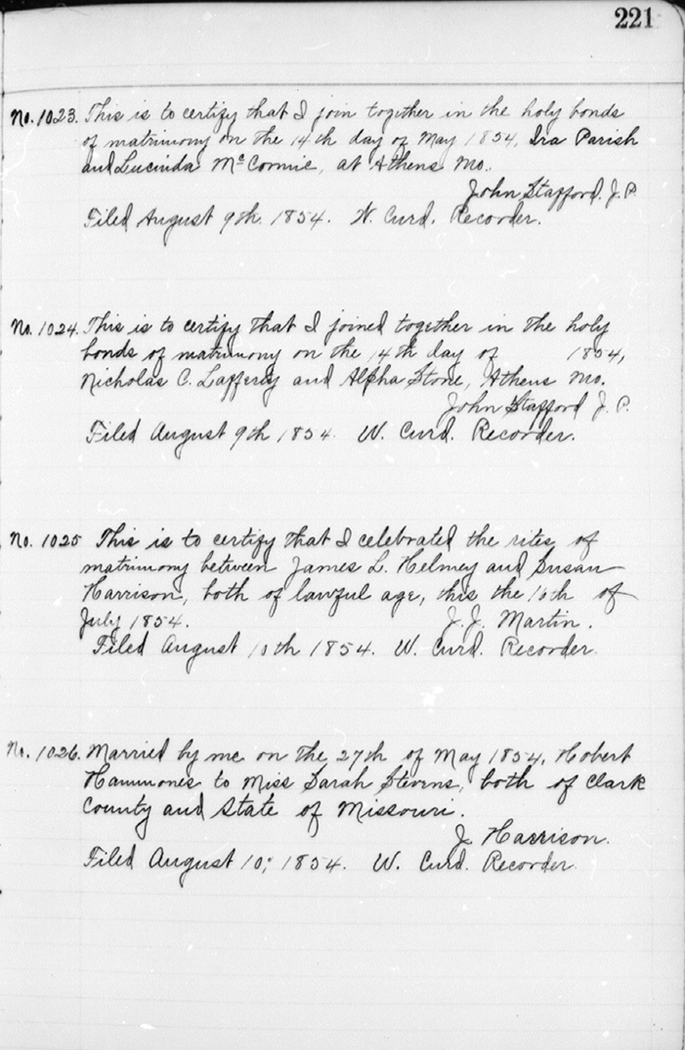 221
No. 1023. This is to certify that I join together in the holy bonds
of matrimony on the 14th day of May 1854, Ira Parish
and Lucinda McCormic, at Athens Mo.
John Stafford. J.P.
Filed August 9th. 1854. W. Curd. Recorder.
No. 1024. This is to certify that I joined together in the holy
bonds of matrimony on the 14th day of 1854,
Nicholas C. Lafferty and Alpha Stone, Athens Mo.
John Stafford J. P.
Filed August 9th 1854. W. Curd. Recorder.
No. 1025 This is to certify that I celebrated the rites of
matrimony between James L. Helmey and Susan
Harrison, both of lawful age, this the 16th of
July 1854. J. J. Martin.
Filed August 10th 1854. W. Curd. Recorder.
No. 1026. Married by me on the 27th of May 1854, Hobert
Hammones to Miss Sarah Stevens, both of Clark
County and State of Missouri.
J. Harrison.
Filed August 10; 1854. W. Curd. Recorder.